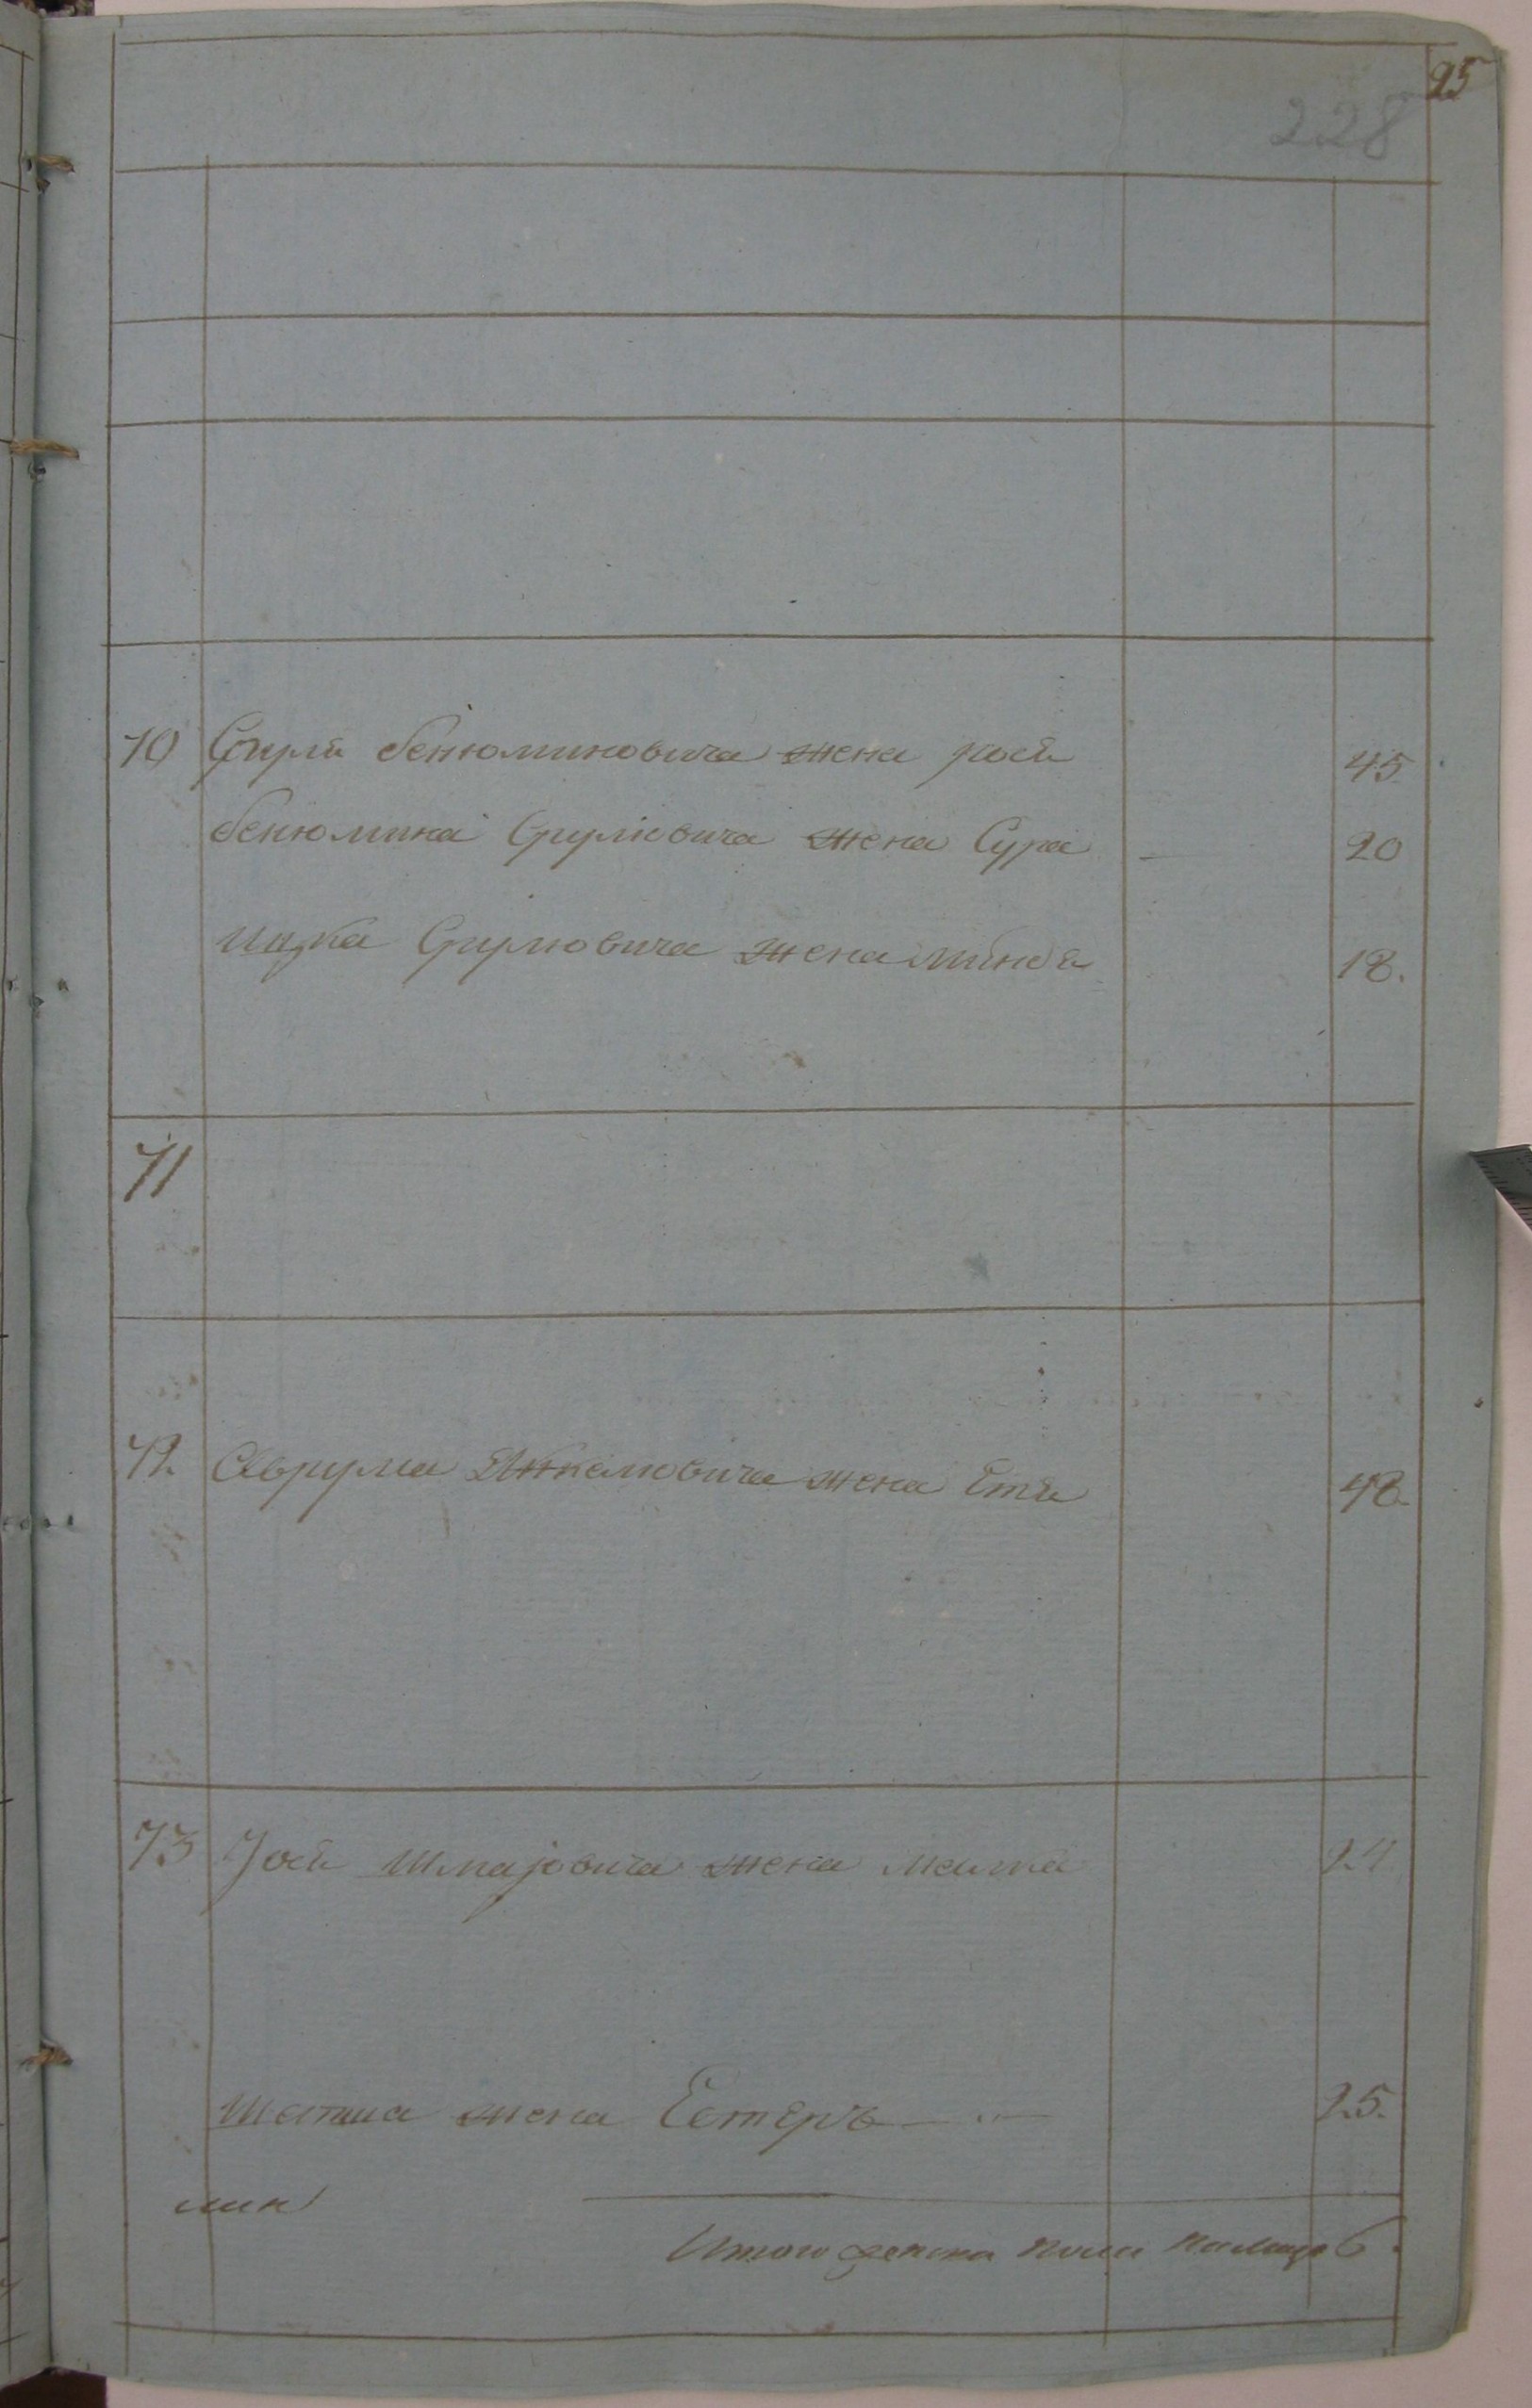 25
228
70 Сруля Бенюминовича жена рося 45
Бенюмина Срулевича жена Сура 20
Ицка Срулювича жена Миндя 18.
71
72 Аврума Янкелювича жена Етя 48.
73 Јося Шмајовича жена 24
жена Естеръ 25.
Итого женска пола налицо 6.